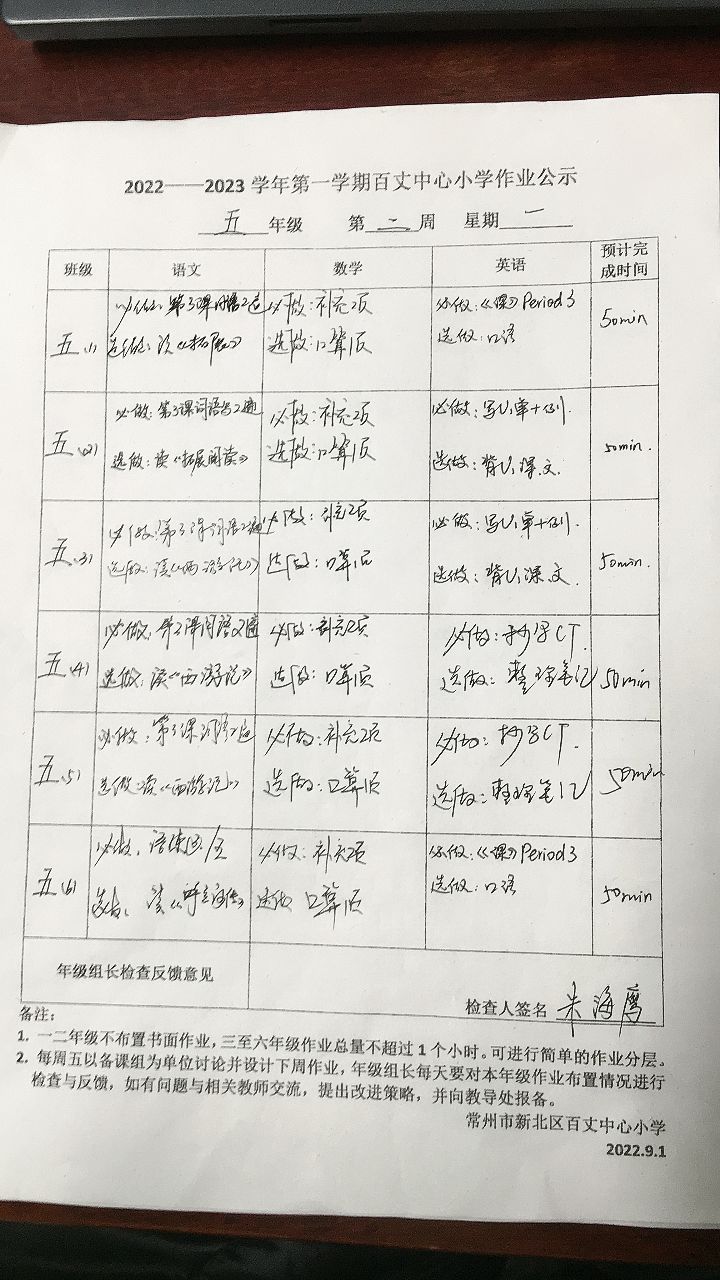 2022——2023学年第一学期百丈中心小学作业公示
五 年级 第 二 周 星期 二
班级 语文 数学 英语 预计完成时间
五(1) 必做:第3课词语2遍 必做:补充2页 必做:《课》Period 3 50min
选做:读《拓展》 选做:口算1页 选做:口语
五(2) 必做:第3课词语写2遍 必做:补充2页 必做:写U1单+例. 50min.
选做:读《拓展阅读》 选做:口算1页 选做:背U1课文.
五(3) 必做:第3课词语2遍 必做:补充2页 必做:写U1单+例. 50min.
选做:读《西游记》 选做:口算1页 选做:背U1课文.
五(4) 必做:第3课词语2遍 必做:补充2页 必做:抄写CT. 50min
选做:读《西游记》 选做:口算1页 选做:整理笔记
五(5) 必做:第3课词语2遍 必做:补充2页 必做:抄写CT. 50min
选做:读《西游记》 选做:口算1页 选做:整理笔记
五(6) 必做:语 必做:补充2页 必做:《课》Period 3 50min
选做:读 选做 口算1页 选做:口语
年级组长检查反馈意见
检查人签名 朱海鹰
备注:
1. 一二年级不布置书面作业,三至六年级作业总量不超过1个小时。可进行简单的作业分层。
2. 每周五以备课组为单位讨论并设计下周作业,年级组长每天要对本年级作业布置情况进行
检查与反馈,如有问题与相关教师交流,提出改进策略,并向教导处报备。
常州市新北区百丈中心小学
2022.9.1